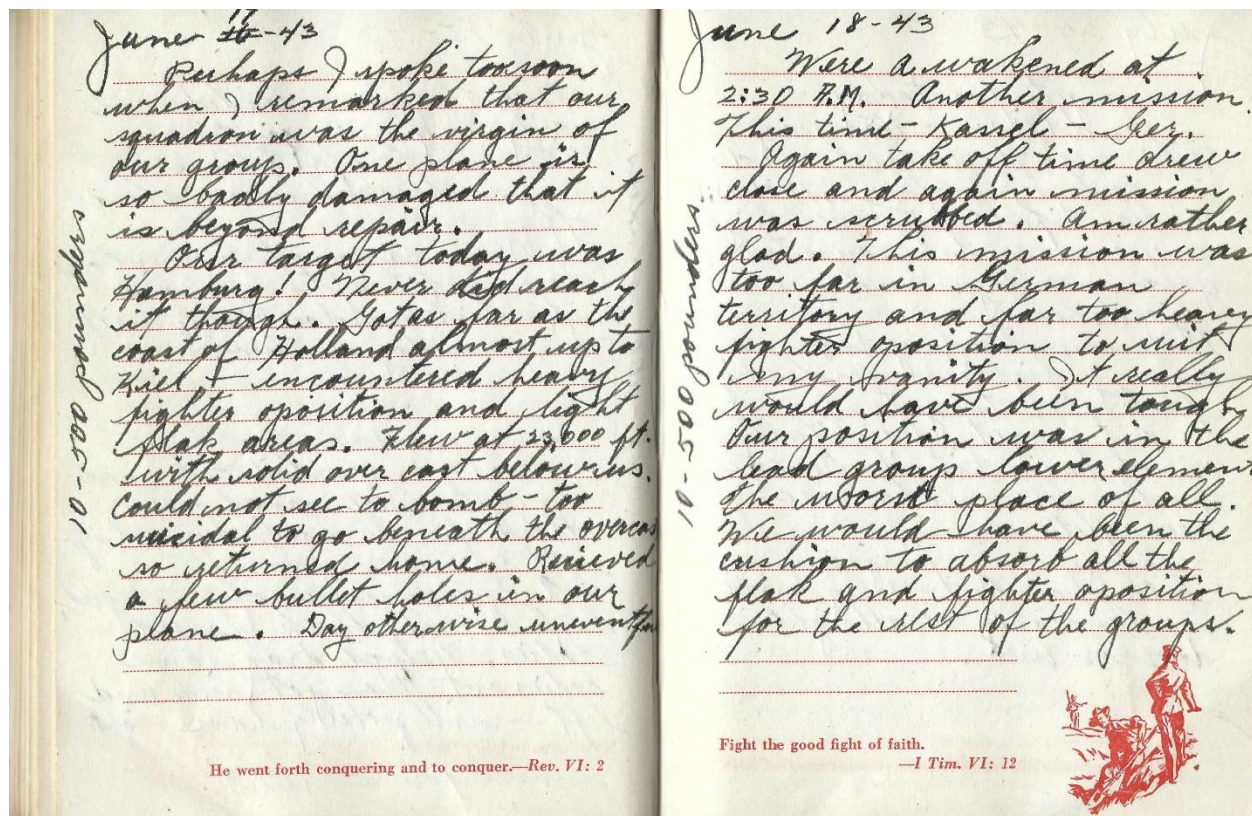 June 17 16-43
Perhaps I spoke too soon
when I remarked that our
squadron was the virgin of
our group. One plane is
so badly damaged that it
is beyond repair.
Our target today was
Hamburg! Never did reach
it though. Got as far as the
coast of Holland almost up to
Kiel - encountered heavy
fighter oposition and light
flak areas. Flew at 23,000 ft.
with solid over cast below us.
Could not see to bomb - too
suicidal to go beneath the overcas
so returned home. Recieved
a few bullet holes in our
plane. Day otherwise uneventful
10-500 pounders
He went forth conquering and to conquer.—Rev. VI: 2
June 18-43
Were awakened at
2:30 A.M. Another mission.
This time - Kassel - Ger.
Again take off time drew
close and again mission
was scrubbed. Am rather
glad. This mission was
too far in German
territory and far too heavy
fighter oposition to suit
my vanity. It really
would have been tough.
Our position was in the
lead group lower element
the worst place of all.
We would have been the
cushion to absorb all the
flak and fighter oposition
for the rest of the groups.
10-500 pounders
Fight the good fight of faith.
—I Tim. VI: 12